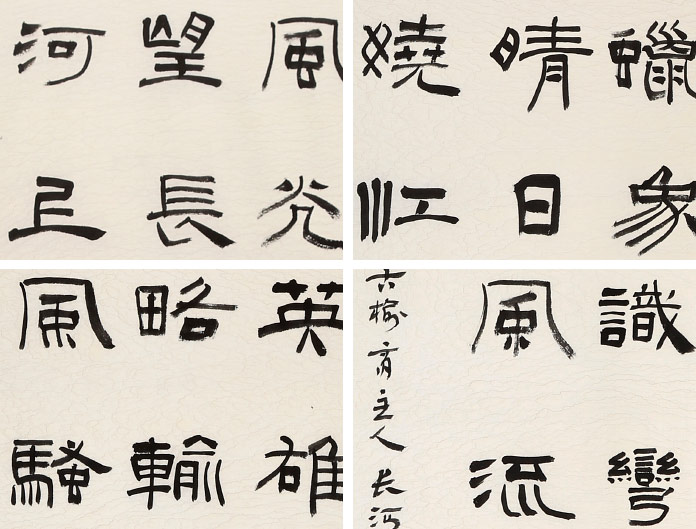 風光
望長
河上
蠟象
晴日
嬈江
英雄
略輸
風騷
識彎
風流
古榆齋主人长河